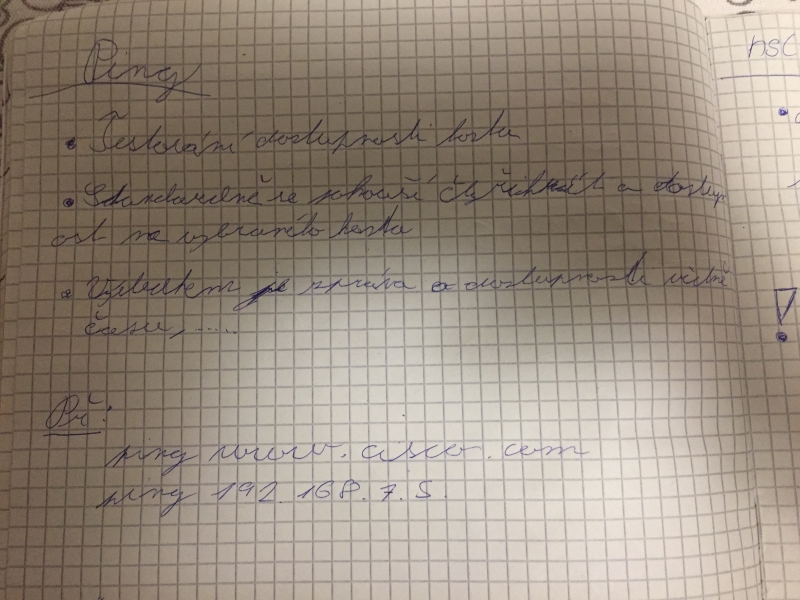 Ping
nsl
• Testování dostupnosti hosta
• Standardně se pokouší čtyřikrát o dostupn
ost na vybraného hosta
• Výsledkem je zpráva o dostupnosti včetně
času, .....
!
Př:
ping www.cisco.com
ping 192.168.7.5.